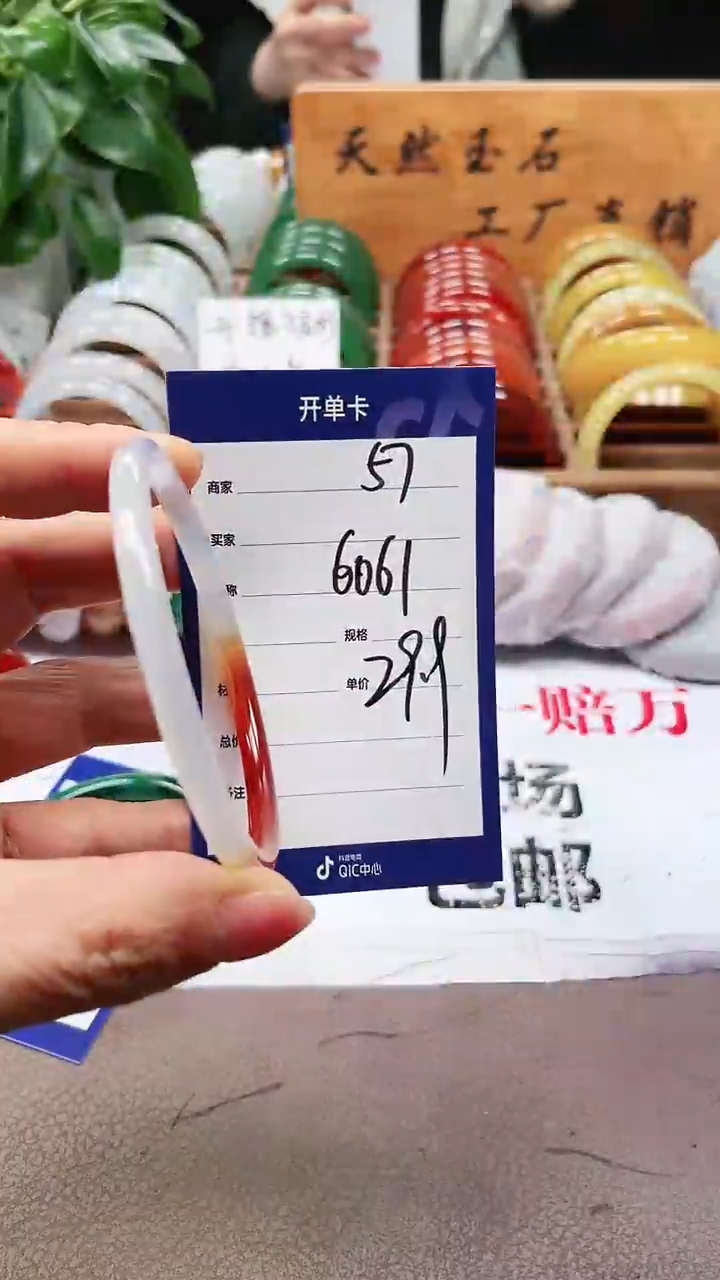 天然玉石
工厂直销
开单卡
商家 57
买家
称 6061
规格
单价 29.9
总价
备注
抖音电商
QIC中心
一赔万
场
包邮